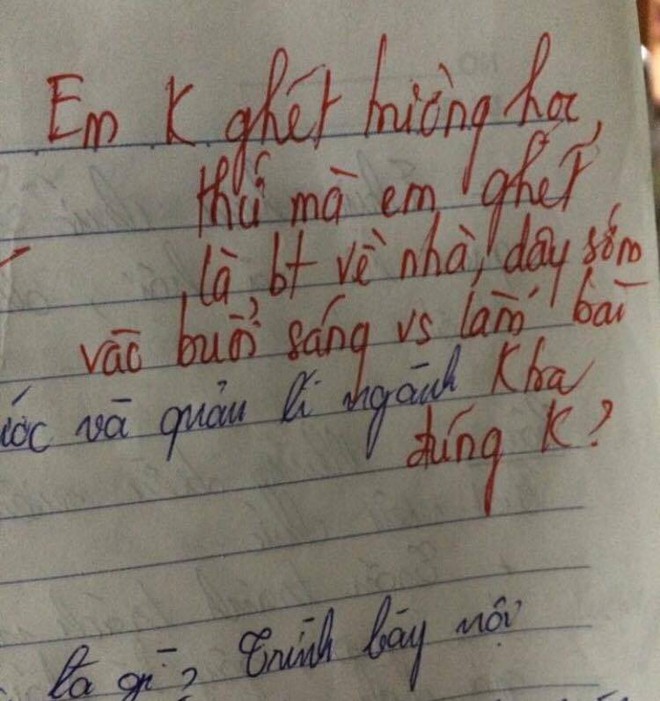 Em K ghét trường học,
thứ mà em ghét
là bt về nhà, dậy sớm
vào buổi sáng vs làm bài
ước và quản lí ngành Ktra
đúng K?
là gì? Trình bày nội